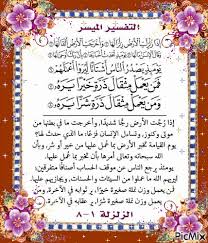 التفسير الميسر
إِذَا زُلْزِلَتِ الْأَرْضُ زِلْزَالَهَا وَأَخْرَجَتِ الْأَرْضُ أَثْقَالَهَا
يَوْمَئِذٍ يَصْدُرُ النَّاسُ أَشْتَاتًا لِّيُرَوْا أَعْمَالَهُمْ
فَمَن يَعْمَلْ مِثْقَالَ ذَرَّةٍ خَيْرًا يَرَهُ
وَمَن يَعْمَلْ مِثْقَالَ ذَرَّةٍ شَرًّا يَرَهُ
إذا رُجَّت الأرض رجًّا شديدًا, وأخرجت ما في بطنها من
موتى وكنوز, وتساءل الإنسان فزعًا: ما الذي حدث لها؟
يوم القيامة تخبر الأرض بما عُمل عليها من خير أو شر, وبأن
الله سبحانه وتعالى أمرها بأن تخبر بما عُمل عليها.
يومئذ يرجع الناس عن موقف الحساب أصنافًا متفرقين;
ليريهم الله ما عملوا من السيئات والحسنات, ويجازيهم عليها.
فمن يعمل وزن نملة صغيرة خيرًا, ير ثوابه في الآخرة, ومن
يعمل وزن نملة صغيرة شرًا, ير عقابه في الآخرة.
الزلزلة ١-٨
PicMix